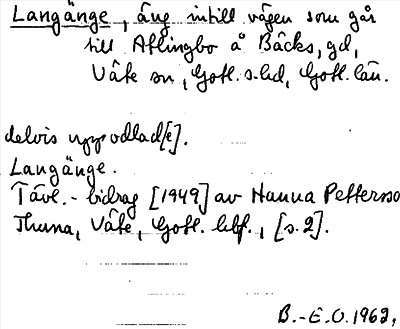 Langänge, äng intill vägen som går
till Atlingbo å Bäcks, gd,
Väte sn, Gotl. s. hd, Gotl. län.
delvis uppodlad[e].
Langänge.
Tävl.-bidrag [1949] av Hanna Pettersso
Thuna, Väte, Gotl. hbf., [s.2].
B.-E.O. 1962,